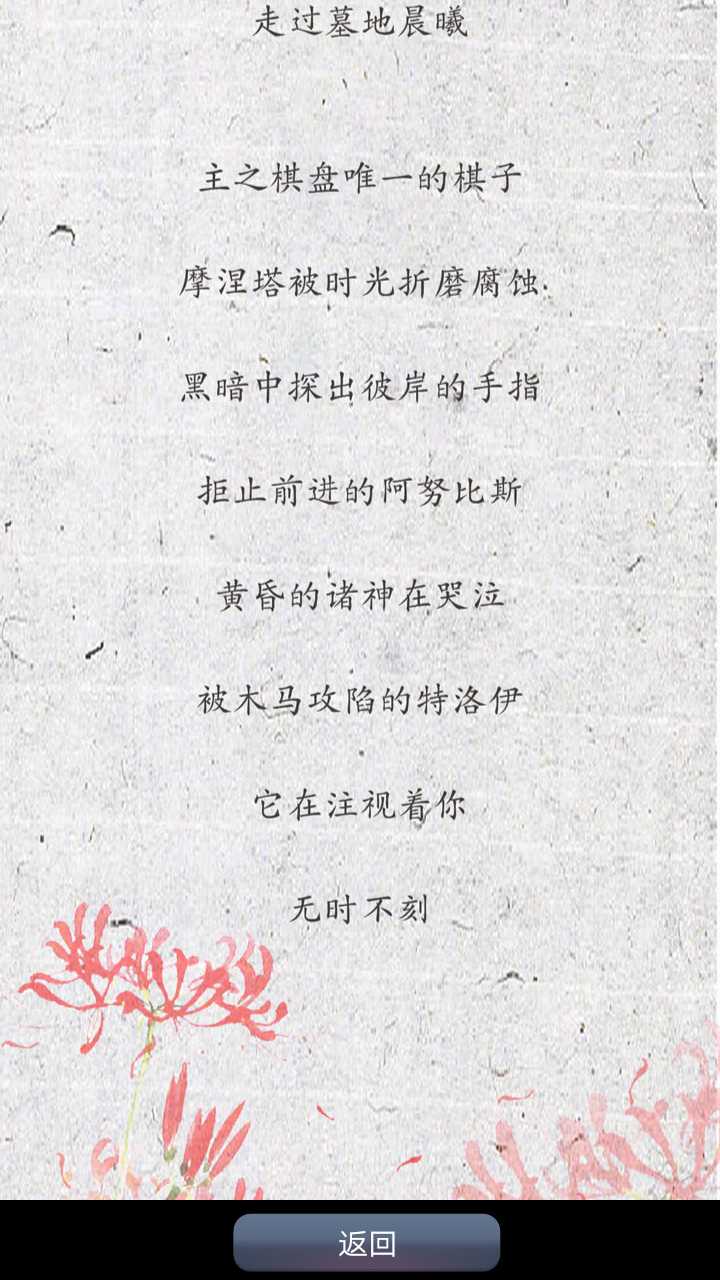 走过墓地晨曦
主之棋盘唯一的棋子
摩涅塔被时光折磨腐蚀.
黑暗中探出彼岸的手指
拒止前进的阿努比斯
黄昏的诸神在哭泣
被木马攻陷的特洛伊
它在注视着你
无时不刻
返回